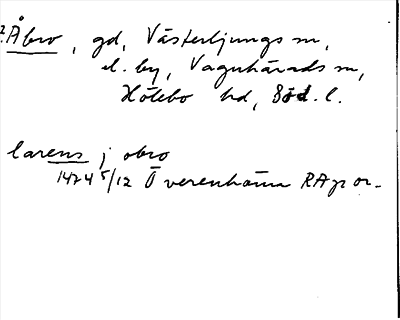 ? Åbro, gd, Västerljungs sn,
el. by, Vagnhärads sn,
Hölebo hd, Söd. l.
larens j obro
1474 5/12 Överenhörna RAp or.